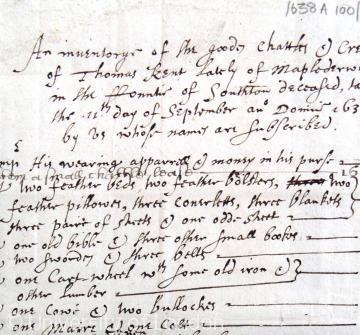 1638 A 100/
An inventorye of the goodes Chattles & Cre
of Thomas Kent lately of Maplederwe
in the Countie of Southton deceased, ta
the 11th day of September ano Domini 163
by vs whose names are subscribed.
His wearing apparrell & money in his purse
two feather beds two feather bolsters, two
feather pillowes, three Coverletts, three blanketts
three paire of sheets & one odde sheet
one old bible & three other small bookes
two swordes & three bells
one Cart wheel wth some old iron &
other lumber
one Cowe & two Bullockes
one Mare & one Colt